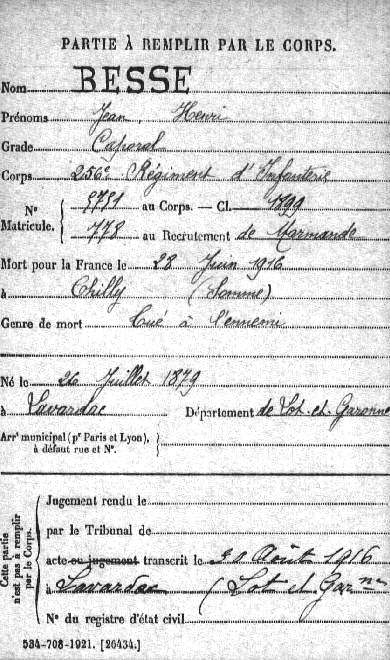 PARTIE À REMPLIR PAR LE CORPS.
Nom BESSE
Prénoms Jean, Henri
Grade Caporal
Corps 256e Régiment d'Infanterie
N° Matricule. { 5751 au Corps. — Cl. 1899
778 au Recrutement de Marmande
Mort pour la France le 28 Juin 1916
à Chilly (Somme)
Genre de mort Tué à l'ennemi
Né le 26 Juillet 1879
à Lavardac Département de Lot-et-Garonne
Arrt municipal (pr Paris et Lyon), à défaut rue et N°.
Cette partie n'est pas à remplir par le Corps.
Jugement rendu le
par le Tribunal de
acte ou jugement transcrit le 31 Août 1916
à Lavardac (Lot et Garne
N° du registre d'état civil
534-708-1921. [26434.]